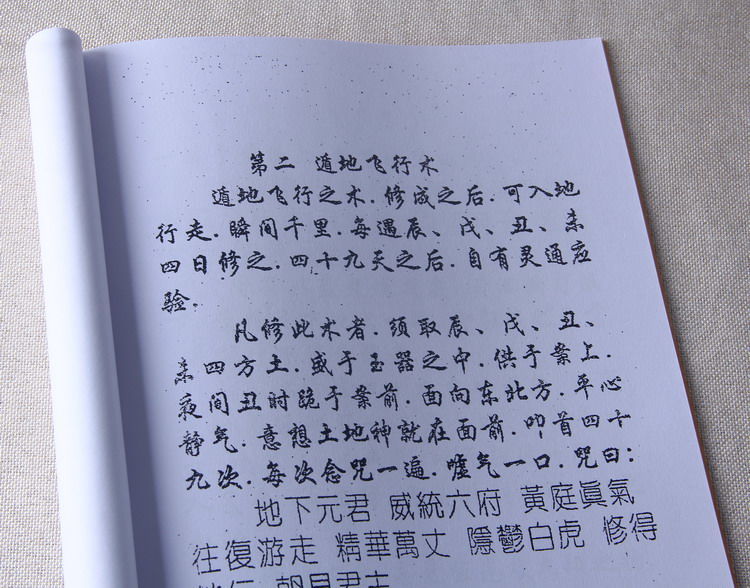 第二 遁地飞行术
遁地飞行之术.修成之后.可入地
行走.瞬间千里.每遇辰、戊、丑、未
四日修之.四十九天之后.自有灵通应
验.
凡修此术者.须取辰、戊、丑、
未四方土.盛于玉器之中.供于案上.
夜间丑时跪于案前.面向东北方.平心
静气.意想土地神就在面前.叩首四十
九次.每次念咒一遍.嘘气一口.咒曰:
地下元君 威統六府 黃庭眞氣
往復游走 精華萬丈 隱鬱白虎 修得
朝見君主